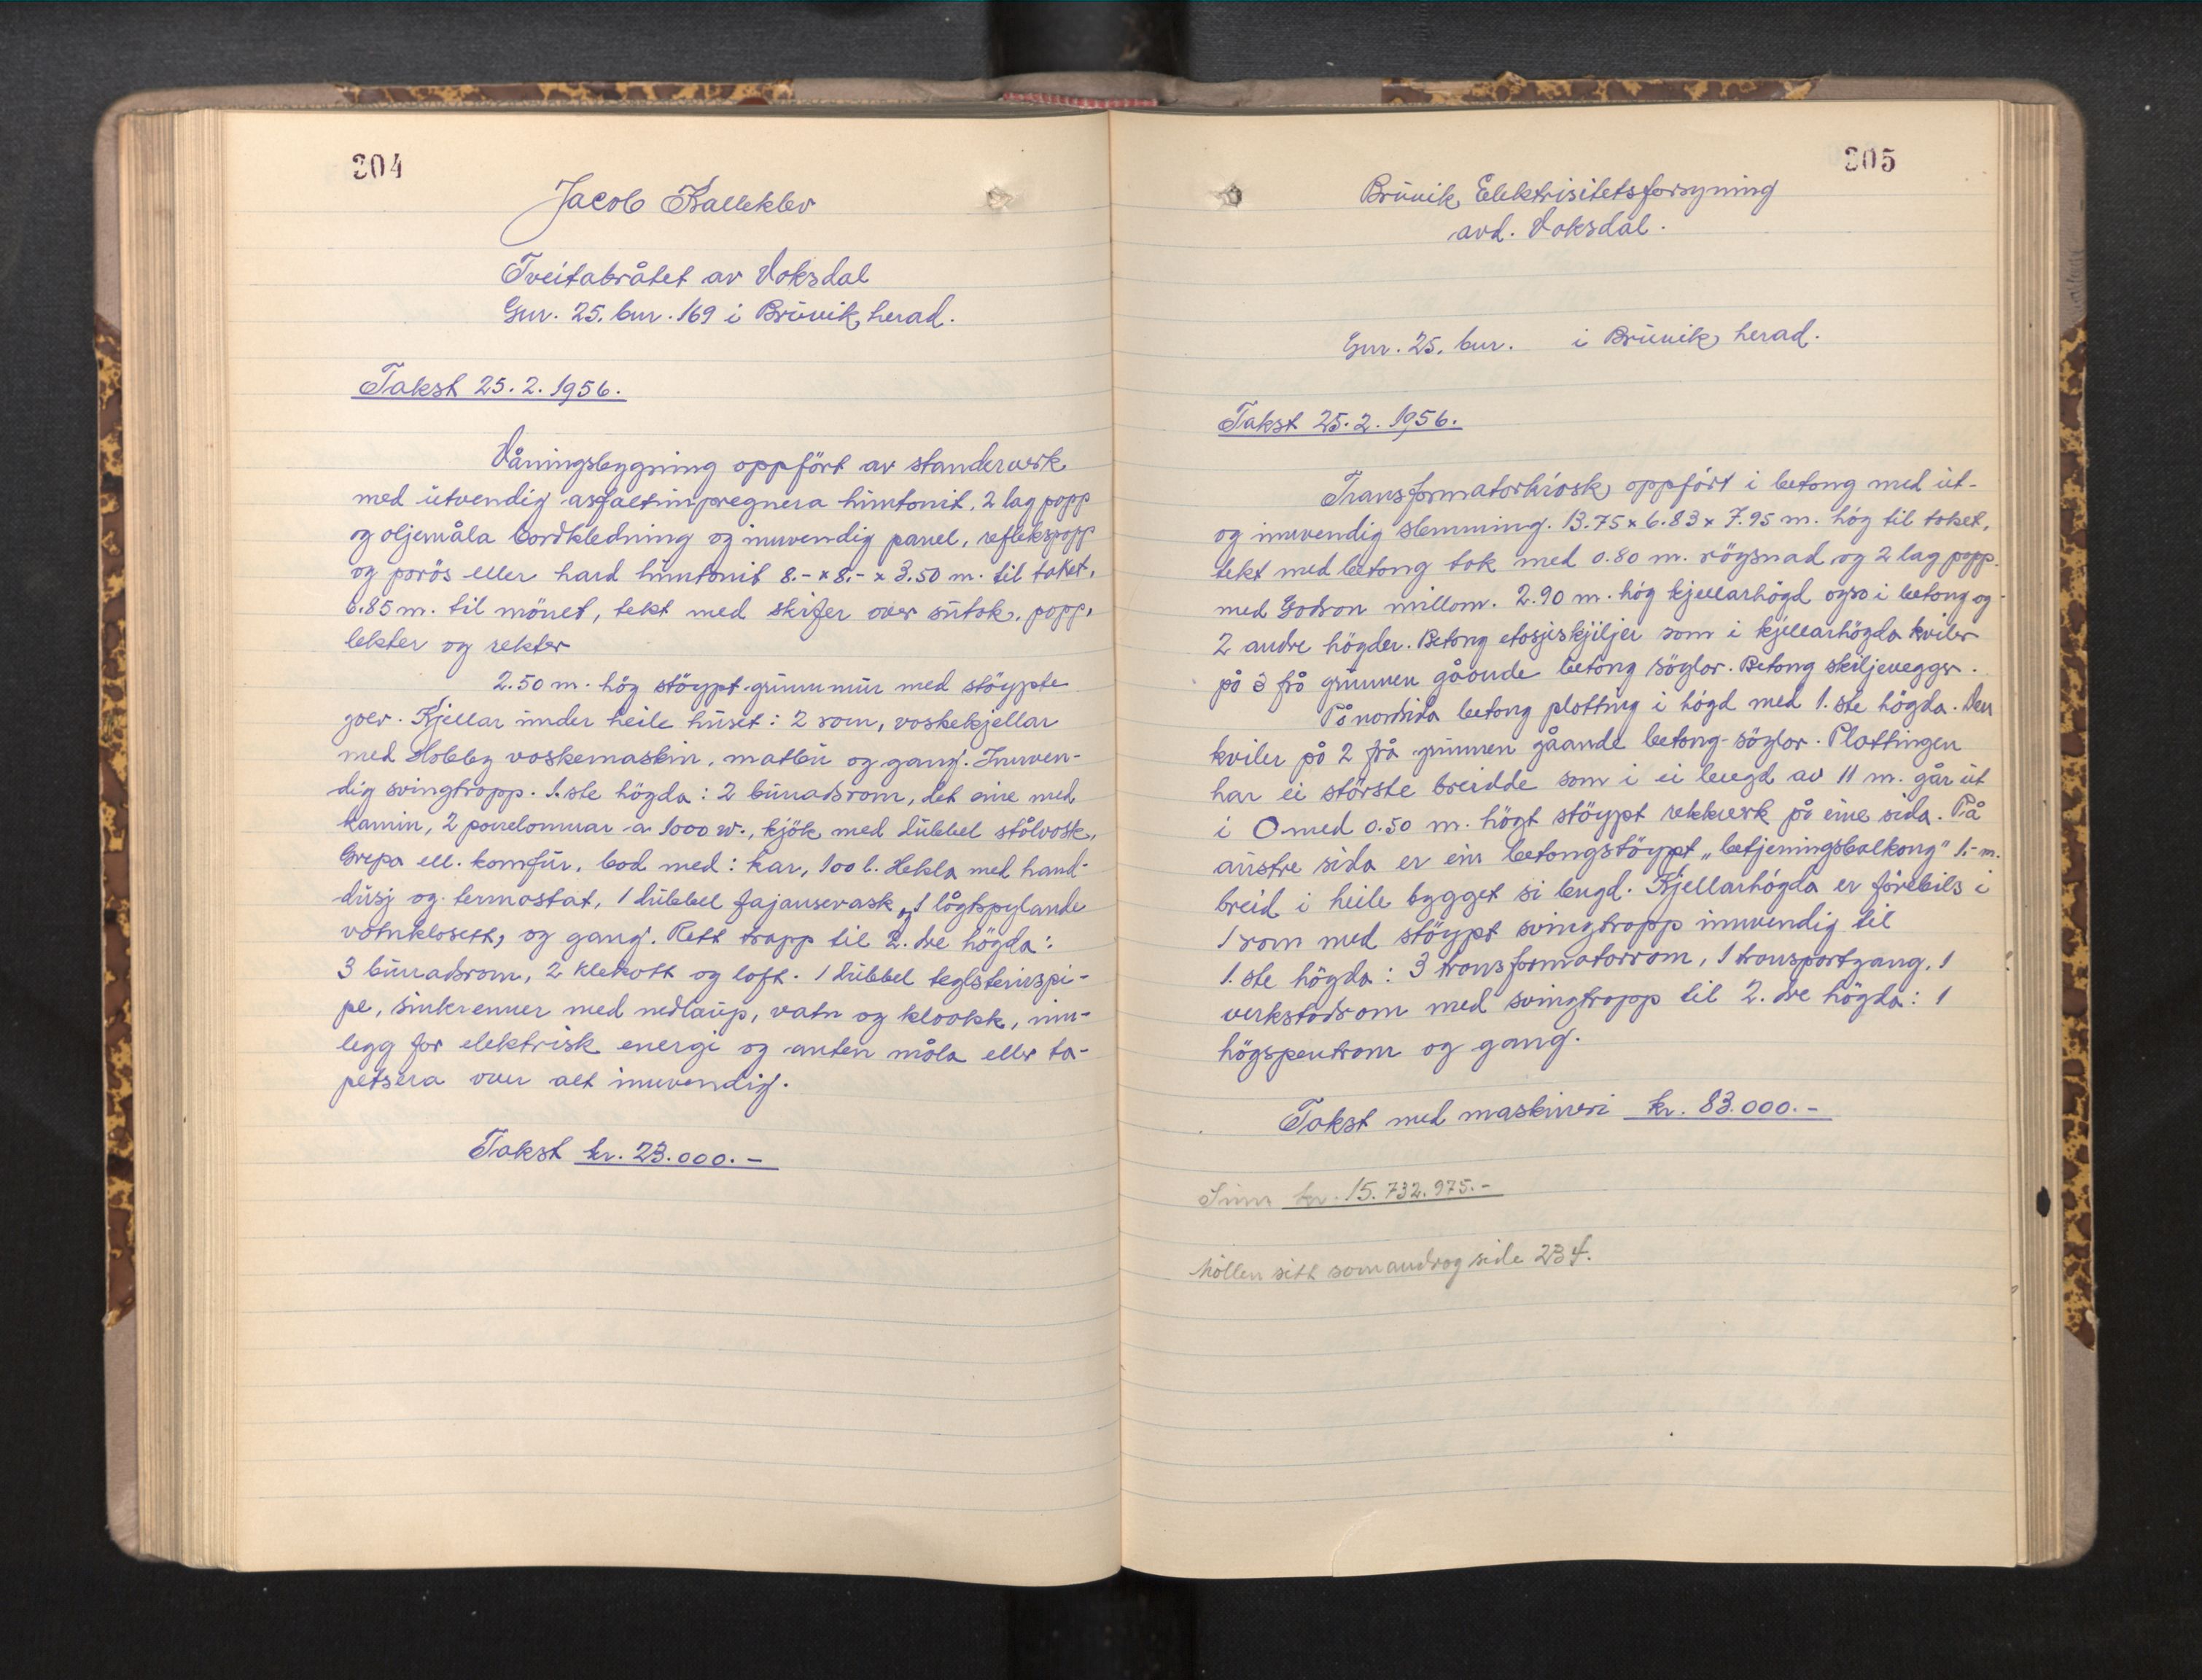 204
Jacob Kalleklev
Tveitabråtet av Vaksdal
Gnr. 25. bnr. 169 i Bruvik herad.
Takst 25.2.1956.
Våningsbygning oppført av standerverk
med utvendig asfaltimpregnera huntonit, 2 lag papp
og oljemåla bordkledning og innvendig panel, reflekspapp
og porös eller hard huntonit 8.- x 8.- x 3.50 m. til taket,
6.85 m. til mönet, tekt med skifer over sutak, papp,
lekter og rekter
2.50 m. hög stöypt grunnmur med stöypte
golv. Kjellar under heile huset: 2 rom, vaskekjellar
med Hobby vaskemaskin, matbu og gang. Innven-
dig svingtrapp. 1.ste högda: 2 bunadsrom, det eine med
kamin, 2 panelomnar a 1000 w., kjök med dubbel stålvask,
Grepa ell. komfur, bad med: kar, 100 l. Hekla med hand-
dusj og termostat, 1 dubbel fajansevask og 1 lågtspylande
vatnklosett, og gang. Rett trapp til 2. dre högda:
3 bunadsrom, 2 klekott og loft. 1 dubbel teglsteinspi-
pe, sinkrenner med nedlaup, vatn og kloakk, inn-
legg for elektrisk energi og anten måla eller ta-
petsera over alt innvendig.
Takst kr. 23.000.-
205
Bruvik Elektrisitetsforsyning
avd. Vaksdal.
Gnr. 25. bnr. i Bruvik herad.
Takst 25.2.1956.
Transformatorkiosk, oppfört i betong med ut-
og innvendig slemming. 13.75 x 6.83 x 7.95 m. hög til taket,
tekt med betong tak med 0.80 m. rögsnad og 2 lag papp
med Godron millom. 2.90 m. hög kjellarhögd også i betong og
2 andre högder. Betong etasjeskjiljer som i kjellarhögda kviler
på 3 frå grunnen gåande betong söylor. Betong skiljevegger.
På nordsida betong platting i högd med 1.ste högda. Den
kviler på 2 frå grunnen gåande betong-söylor. Plattingen
har ei störste breidde som i ei lengd av 11 m. går ut
i 0 med 0.50 m. högt stöypt rekkverk på eine sida. På
austre sida er ein betongstöypt "betjeningsbalkong" 1.- m.
breid i heile bygget si lengd. Kjellarhögda er förebils i
1 rom med stöypt svingtrapp innvendig til
1.ste högda: 3 transformatorrom, 1 transportgang, 1
verkstadsrom med svingtrapp til 2. dre högda: 1
högspentrom og gang.
Takst med maskineri kr. 83.000.-
Sum kr. 15.732.975.-
Möllen sitt som androg side 234.